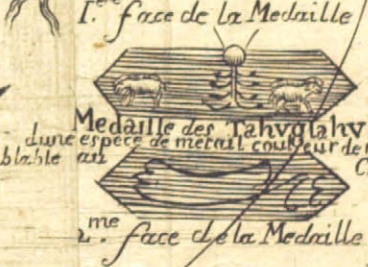 I.ere face de la Medaille
Medaille des Tahuglahu
dune espece de metail couleur de
blable au
2.me face de la Medaille